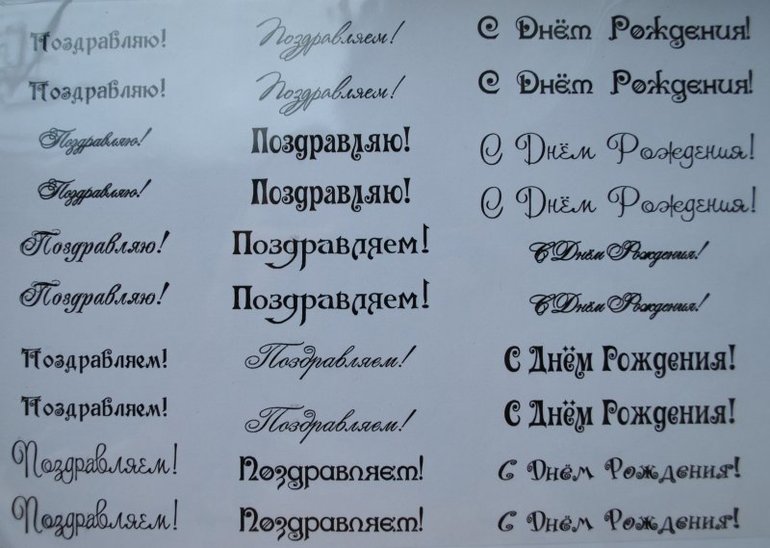 Поздравляю!
Поздравляю!
Поздравляю!
Поздравляю!
Поздравляю!
Поздравляю!
Поздравляем!
Поздравляем!
Поздравляем!
Поздравляем!
Поздравляем!
Поздравляем!
Поздравляю!
Поздравляю!
Поздравляем!
Поздравляем!
Поздравляем!
Поздравляем!
Поздравляем!
Поздравляем!
С Днём Рождения!
С Днём Рождения!
С Днём Рождения!
С Днём Рождения!
С Днём Рождения!
С Днём Рождения!
С Днём Рождения!
С Днём Рождения!
С Днём Рождения!
С Днём Рождения!